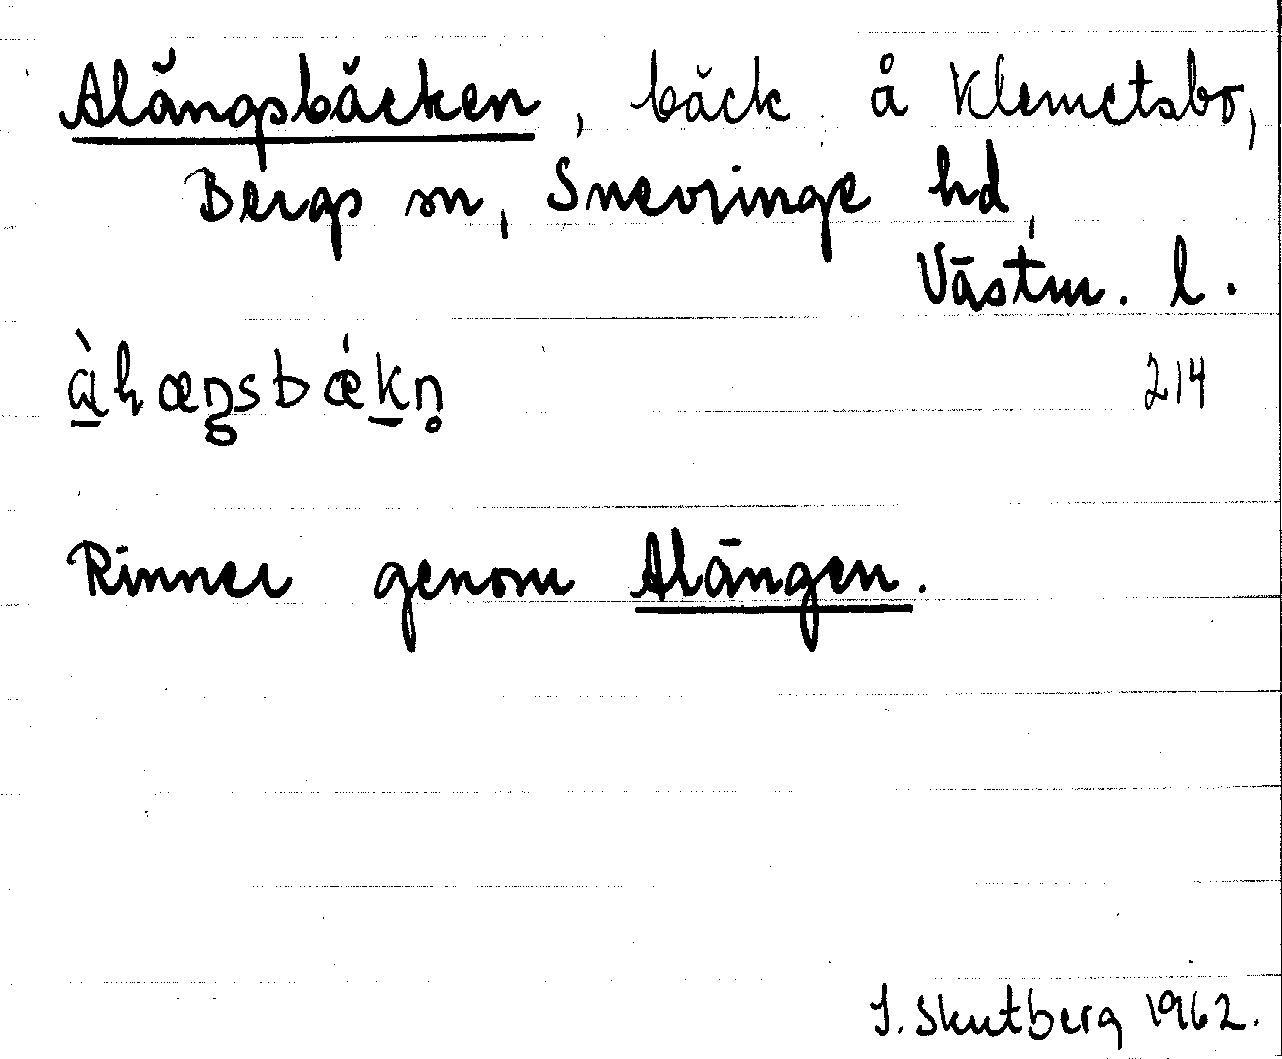 Alängsbäcken, bäck å Klemetsbo,
Bergs sn, Snevringe hd,
Västm. l.
214
Rinner genom Alängen.
J. Skutberg 1962.